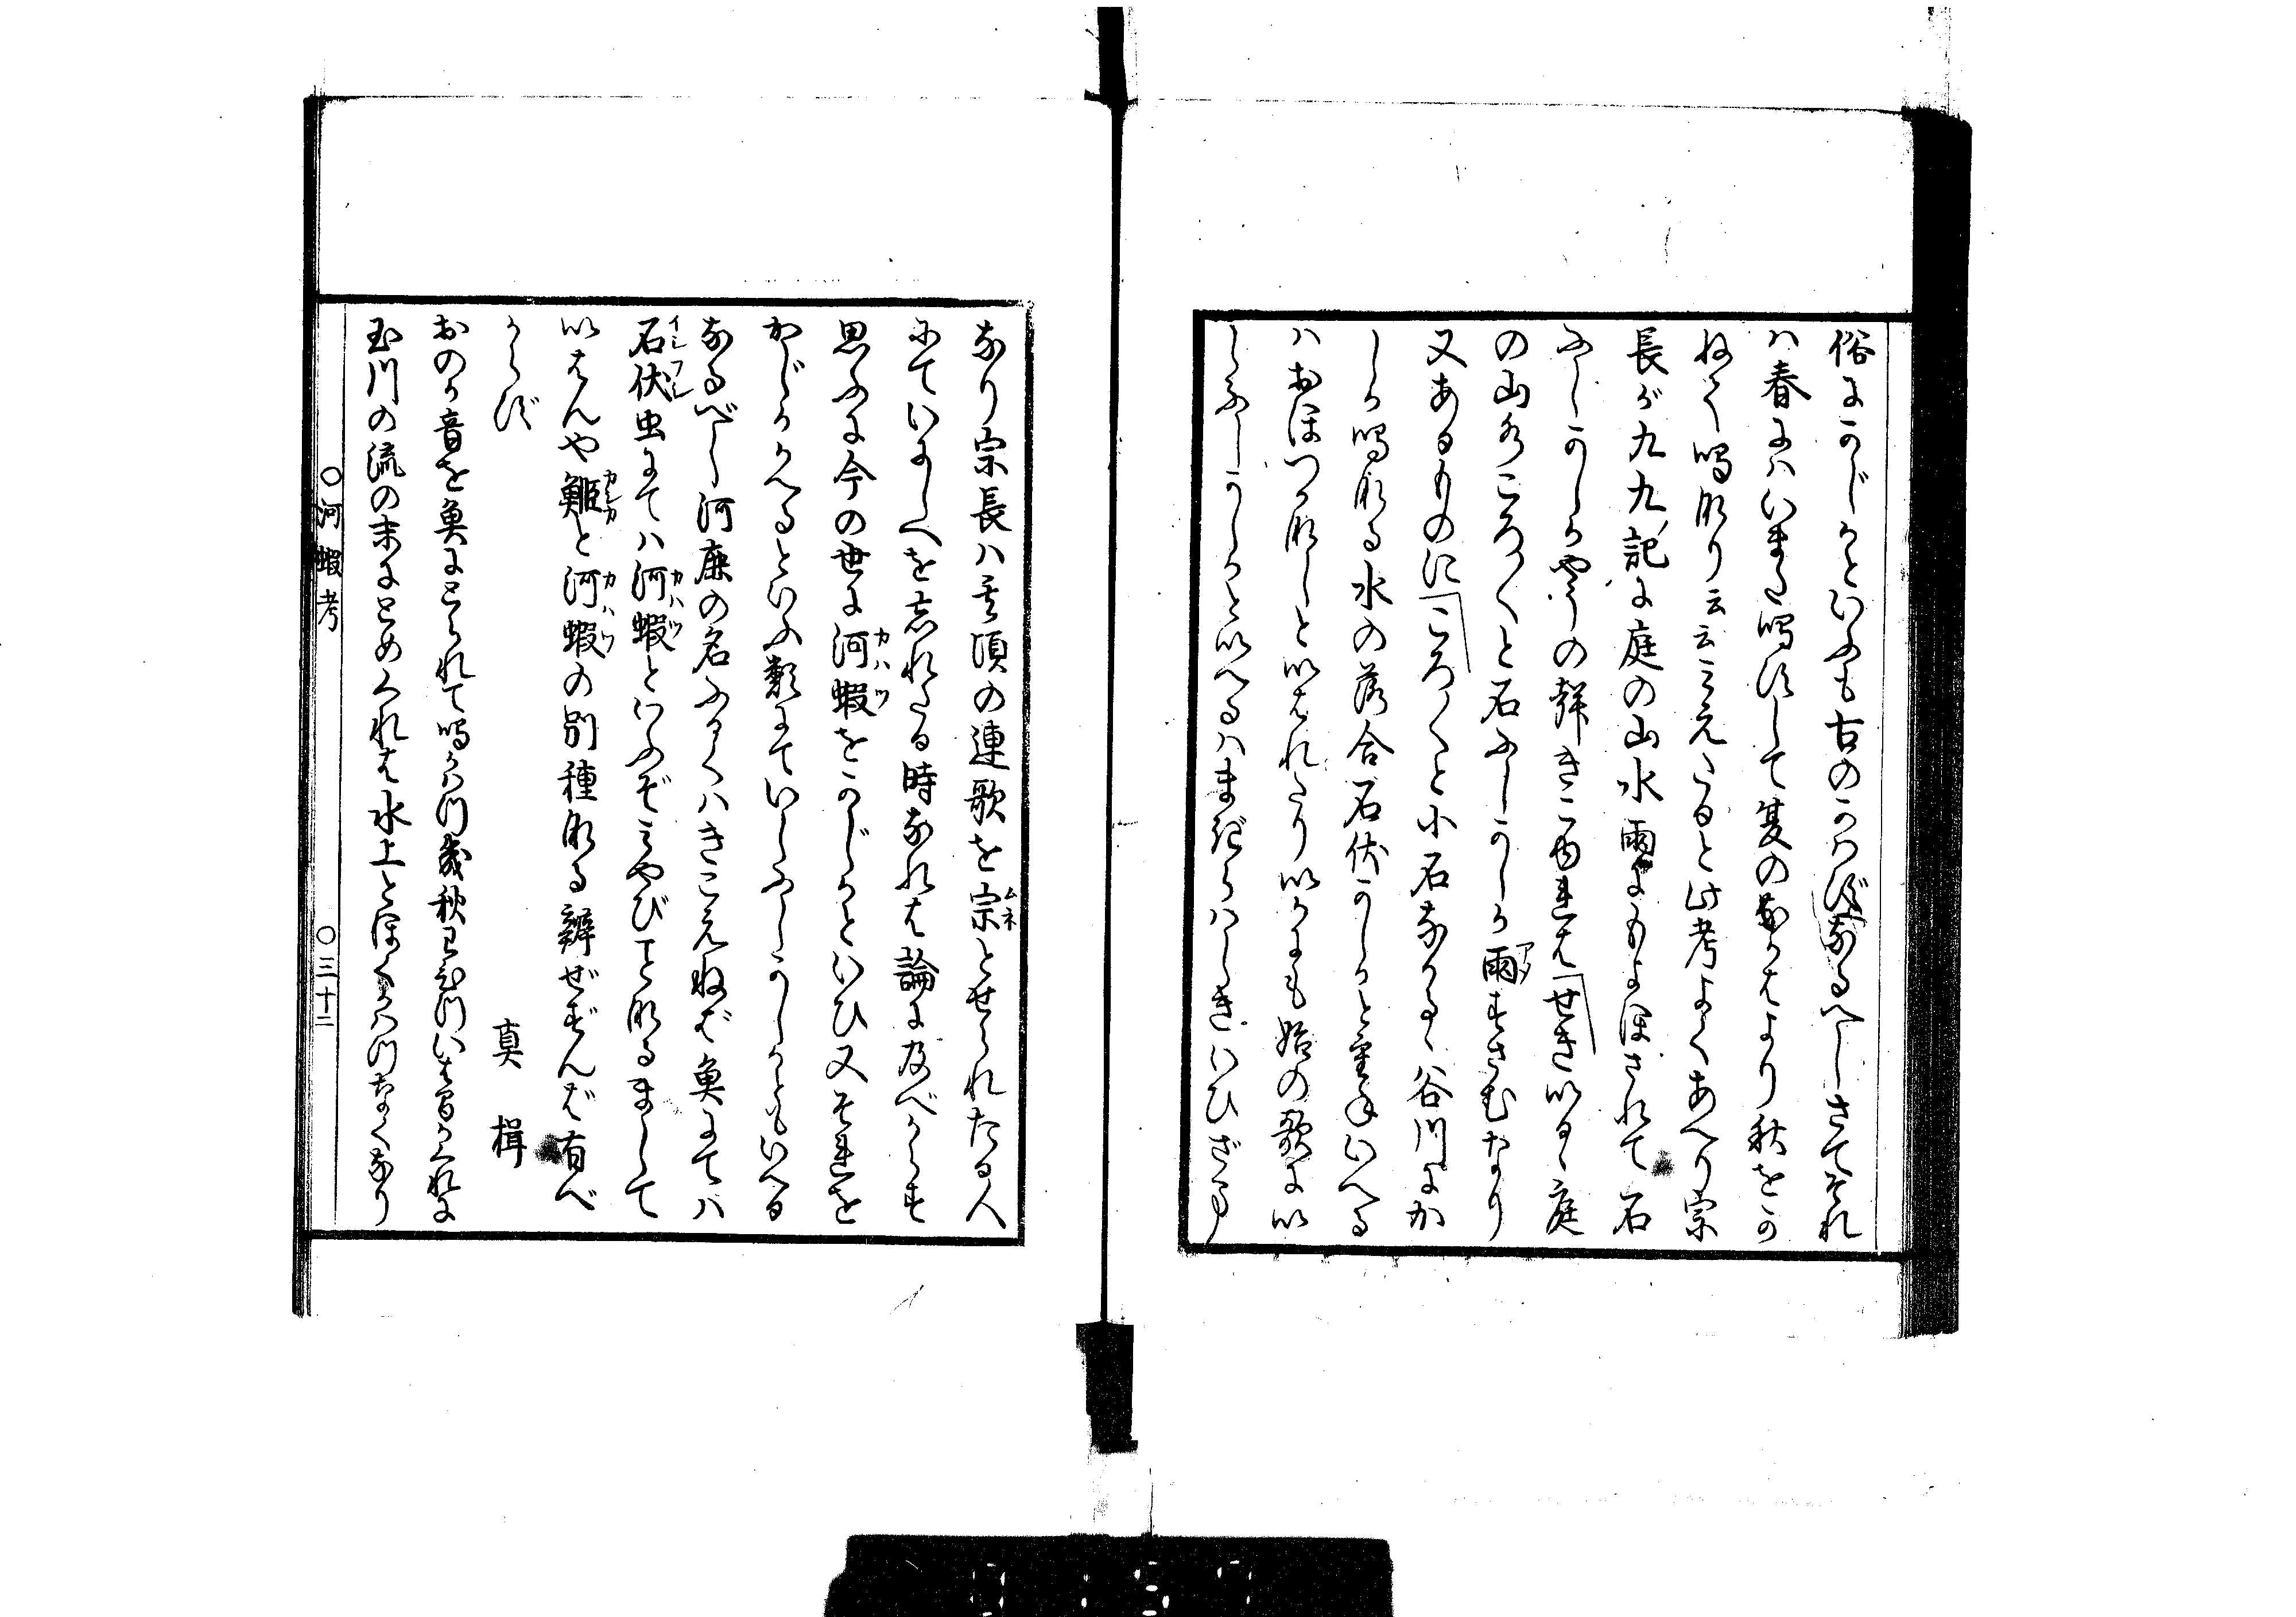 俗にかじかといふも古のかはづなるべしさてそれ
ハ春にハいまだ鳴ずして夏のなかばより秋をか
ねて鳴なり云云みえたると此考よくあへり宗
長が九九記に庭の山水雨にもよほされて石
ふしかしかやうの声きこゆれば「せきいるゝ庭
の山水ころ〳〵と石ふしかしか雨すさむなり
又あるものに「ころ〳〵と小石ながるゝ谷川にか
しか鳴なる水の落合石伏かしかと重ねいへる
ハおぼつかなしといはれたりいかにも始の歌にい
しふしかしかといへるハまぎらハしきいひざま
なり宗長ハ其頃の連歌を宗とせられたる人
にていにしへを忘れたる時なれば論に及べからず
思ふに今の世に河蝦をかじかといひ又それを
かじかかへるといふ類にていしふしかしかともいへる
なるべし河鹿の名ふるくハきこえねば魚にてハ
石伏虫にてハ河蝦といふぞみやびごとなるまして
いはんや鮔と河蝦の別種なる辨ぜずんば有べ
からず
真楫
おのが音を魚にとられて鳴かはづ幾秋
玉川の流の末にとめくれば水上とほくかはづなくなり
〇河蝦考
〇三十二